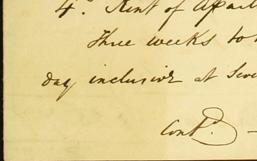 4.° Rent of Apart
Three weeks to
day inclusive at Seve
Cont.d